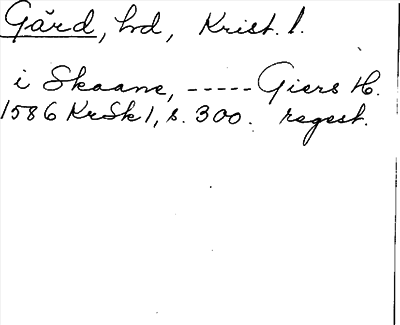 Gård, hd, Krist. l.
i Skaane, ----- Giers H.
1586 KrSk 1, s. 300. regest.